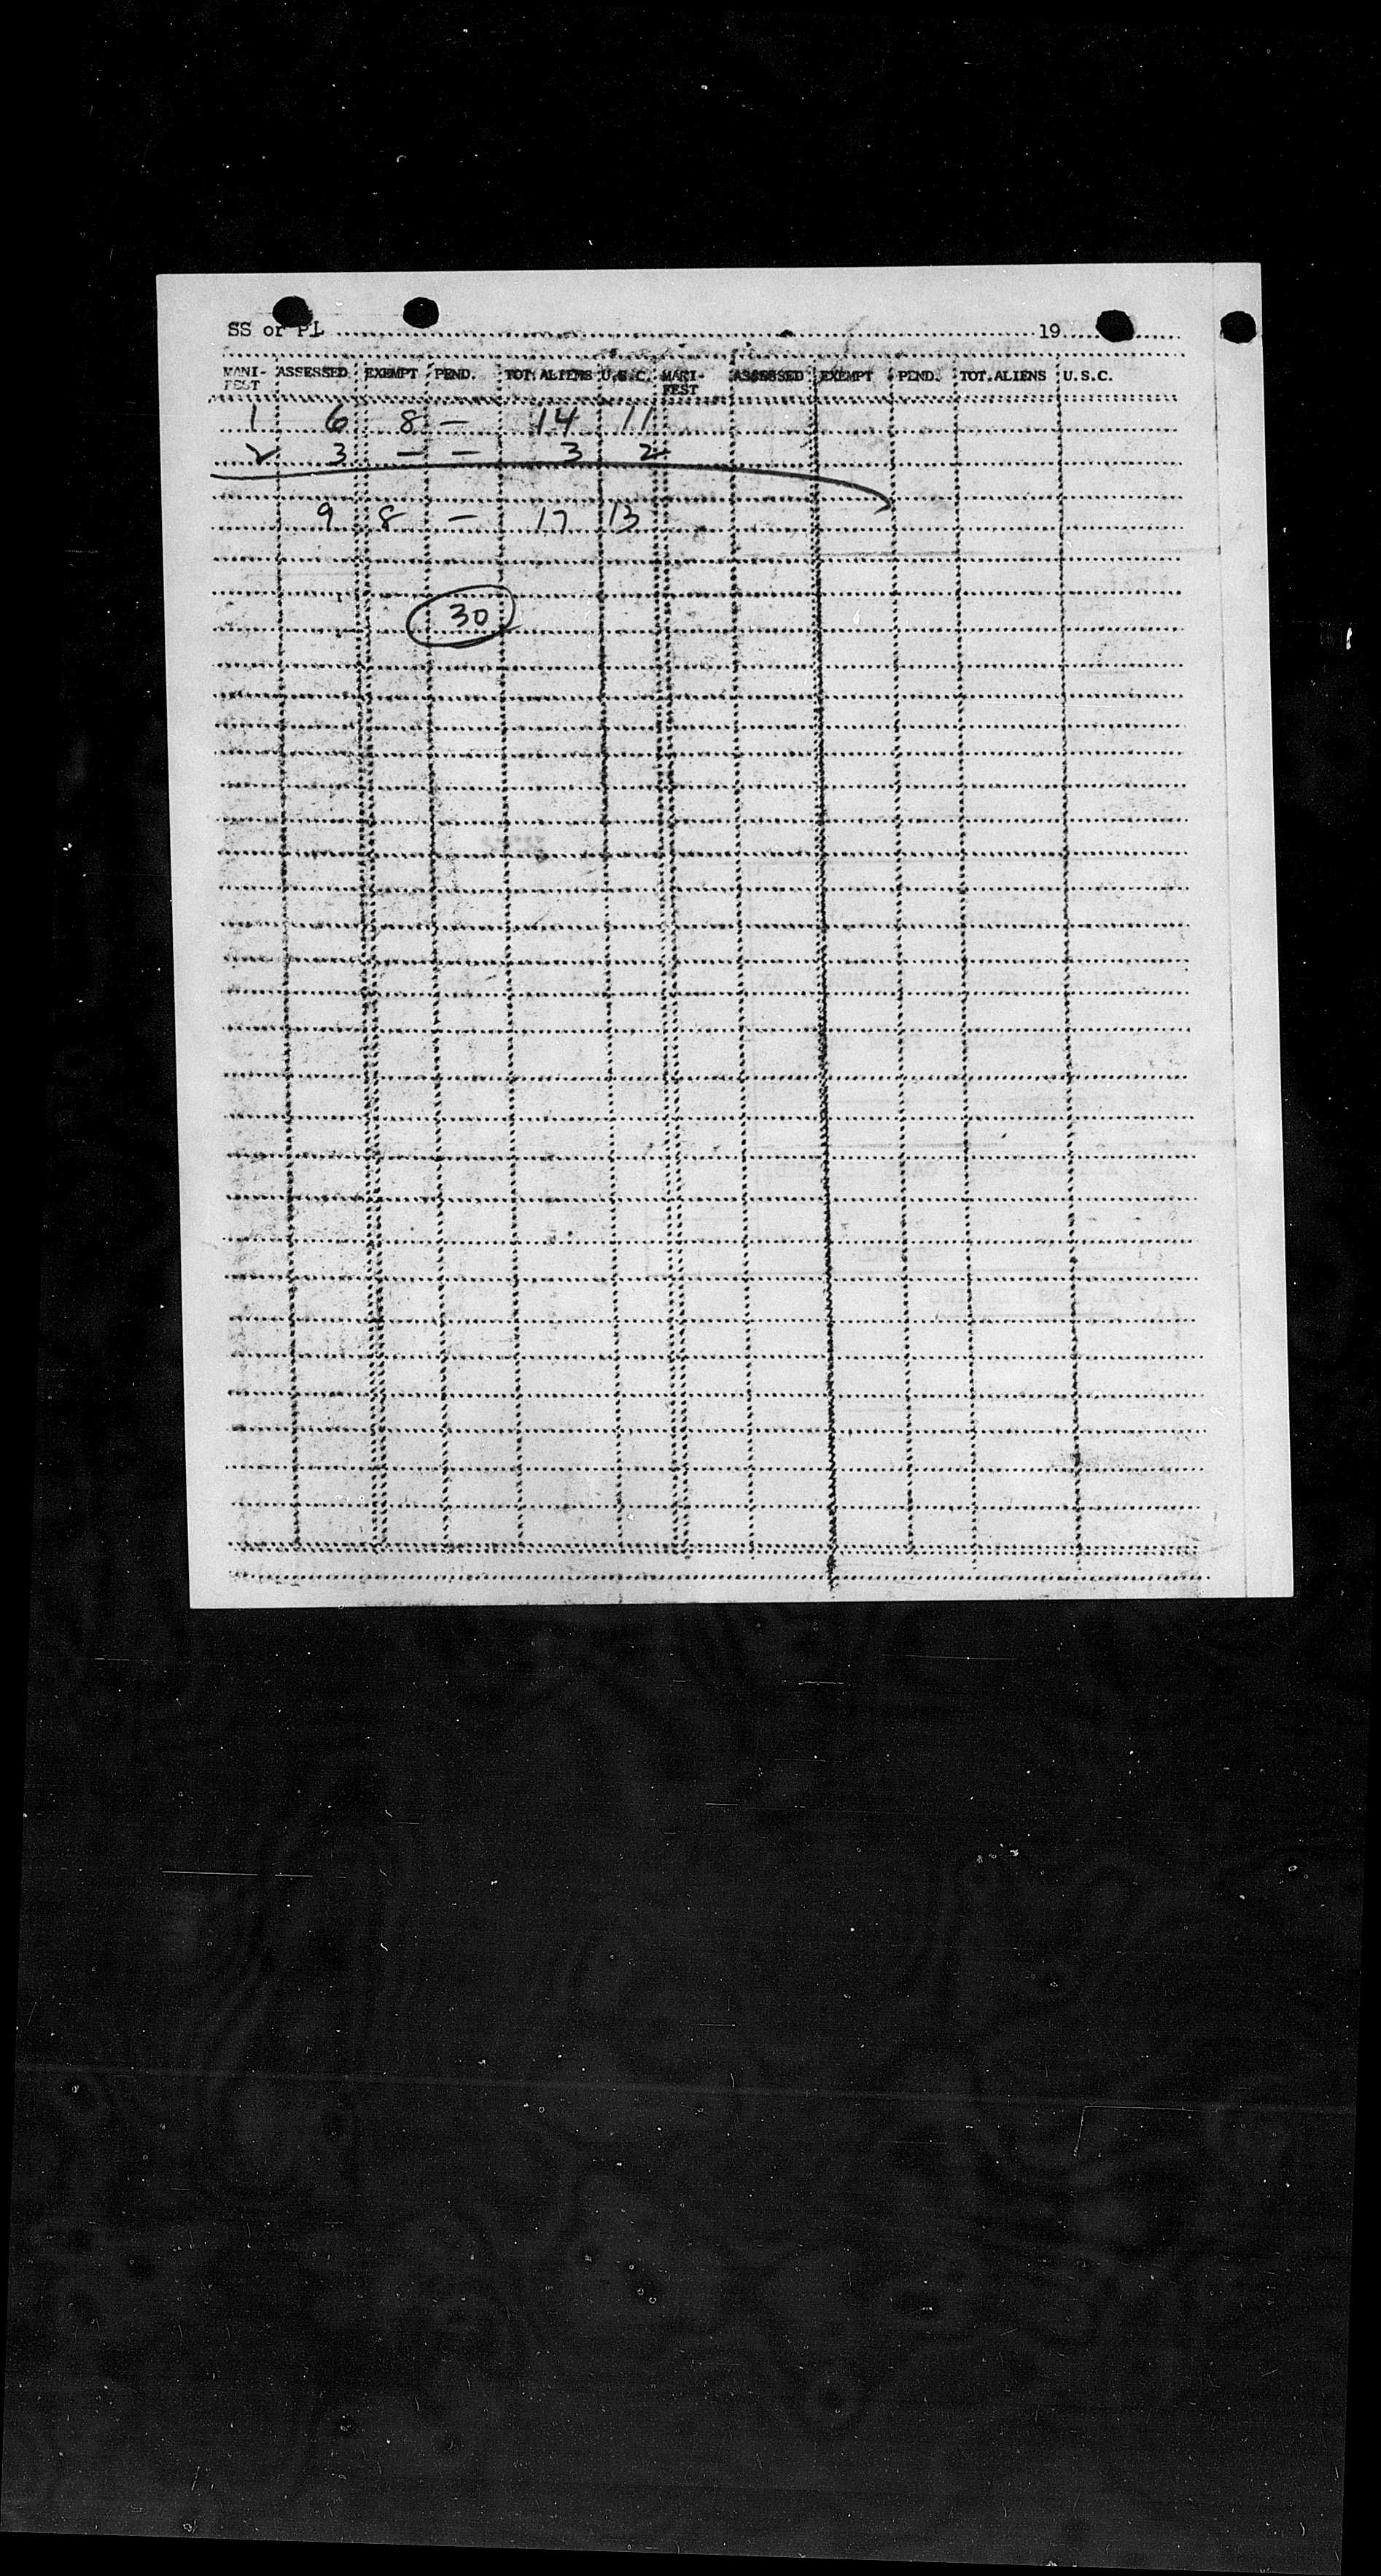 SS or PL 19
MANI- ASSESSED EXEMPT PEND. TOT.ALIENS U.S.C. MANI- ASSESSED EXEMPT PEND. TOT.ALIENS U.S.C.
FEST FEST
1 6 8 — 14 11
2 3 — — 3 2
9 8 — 17 13
30